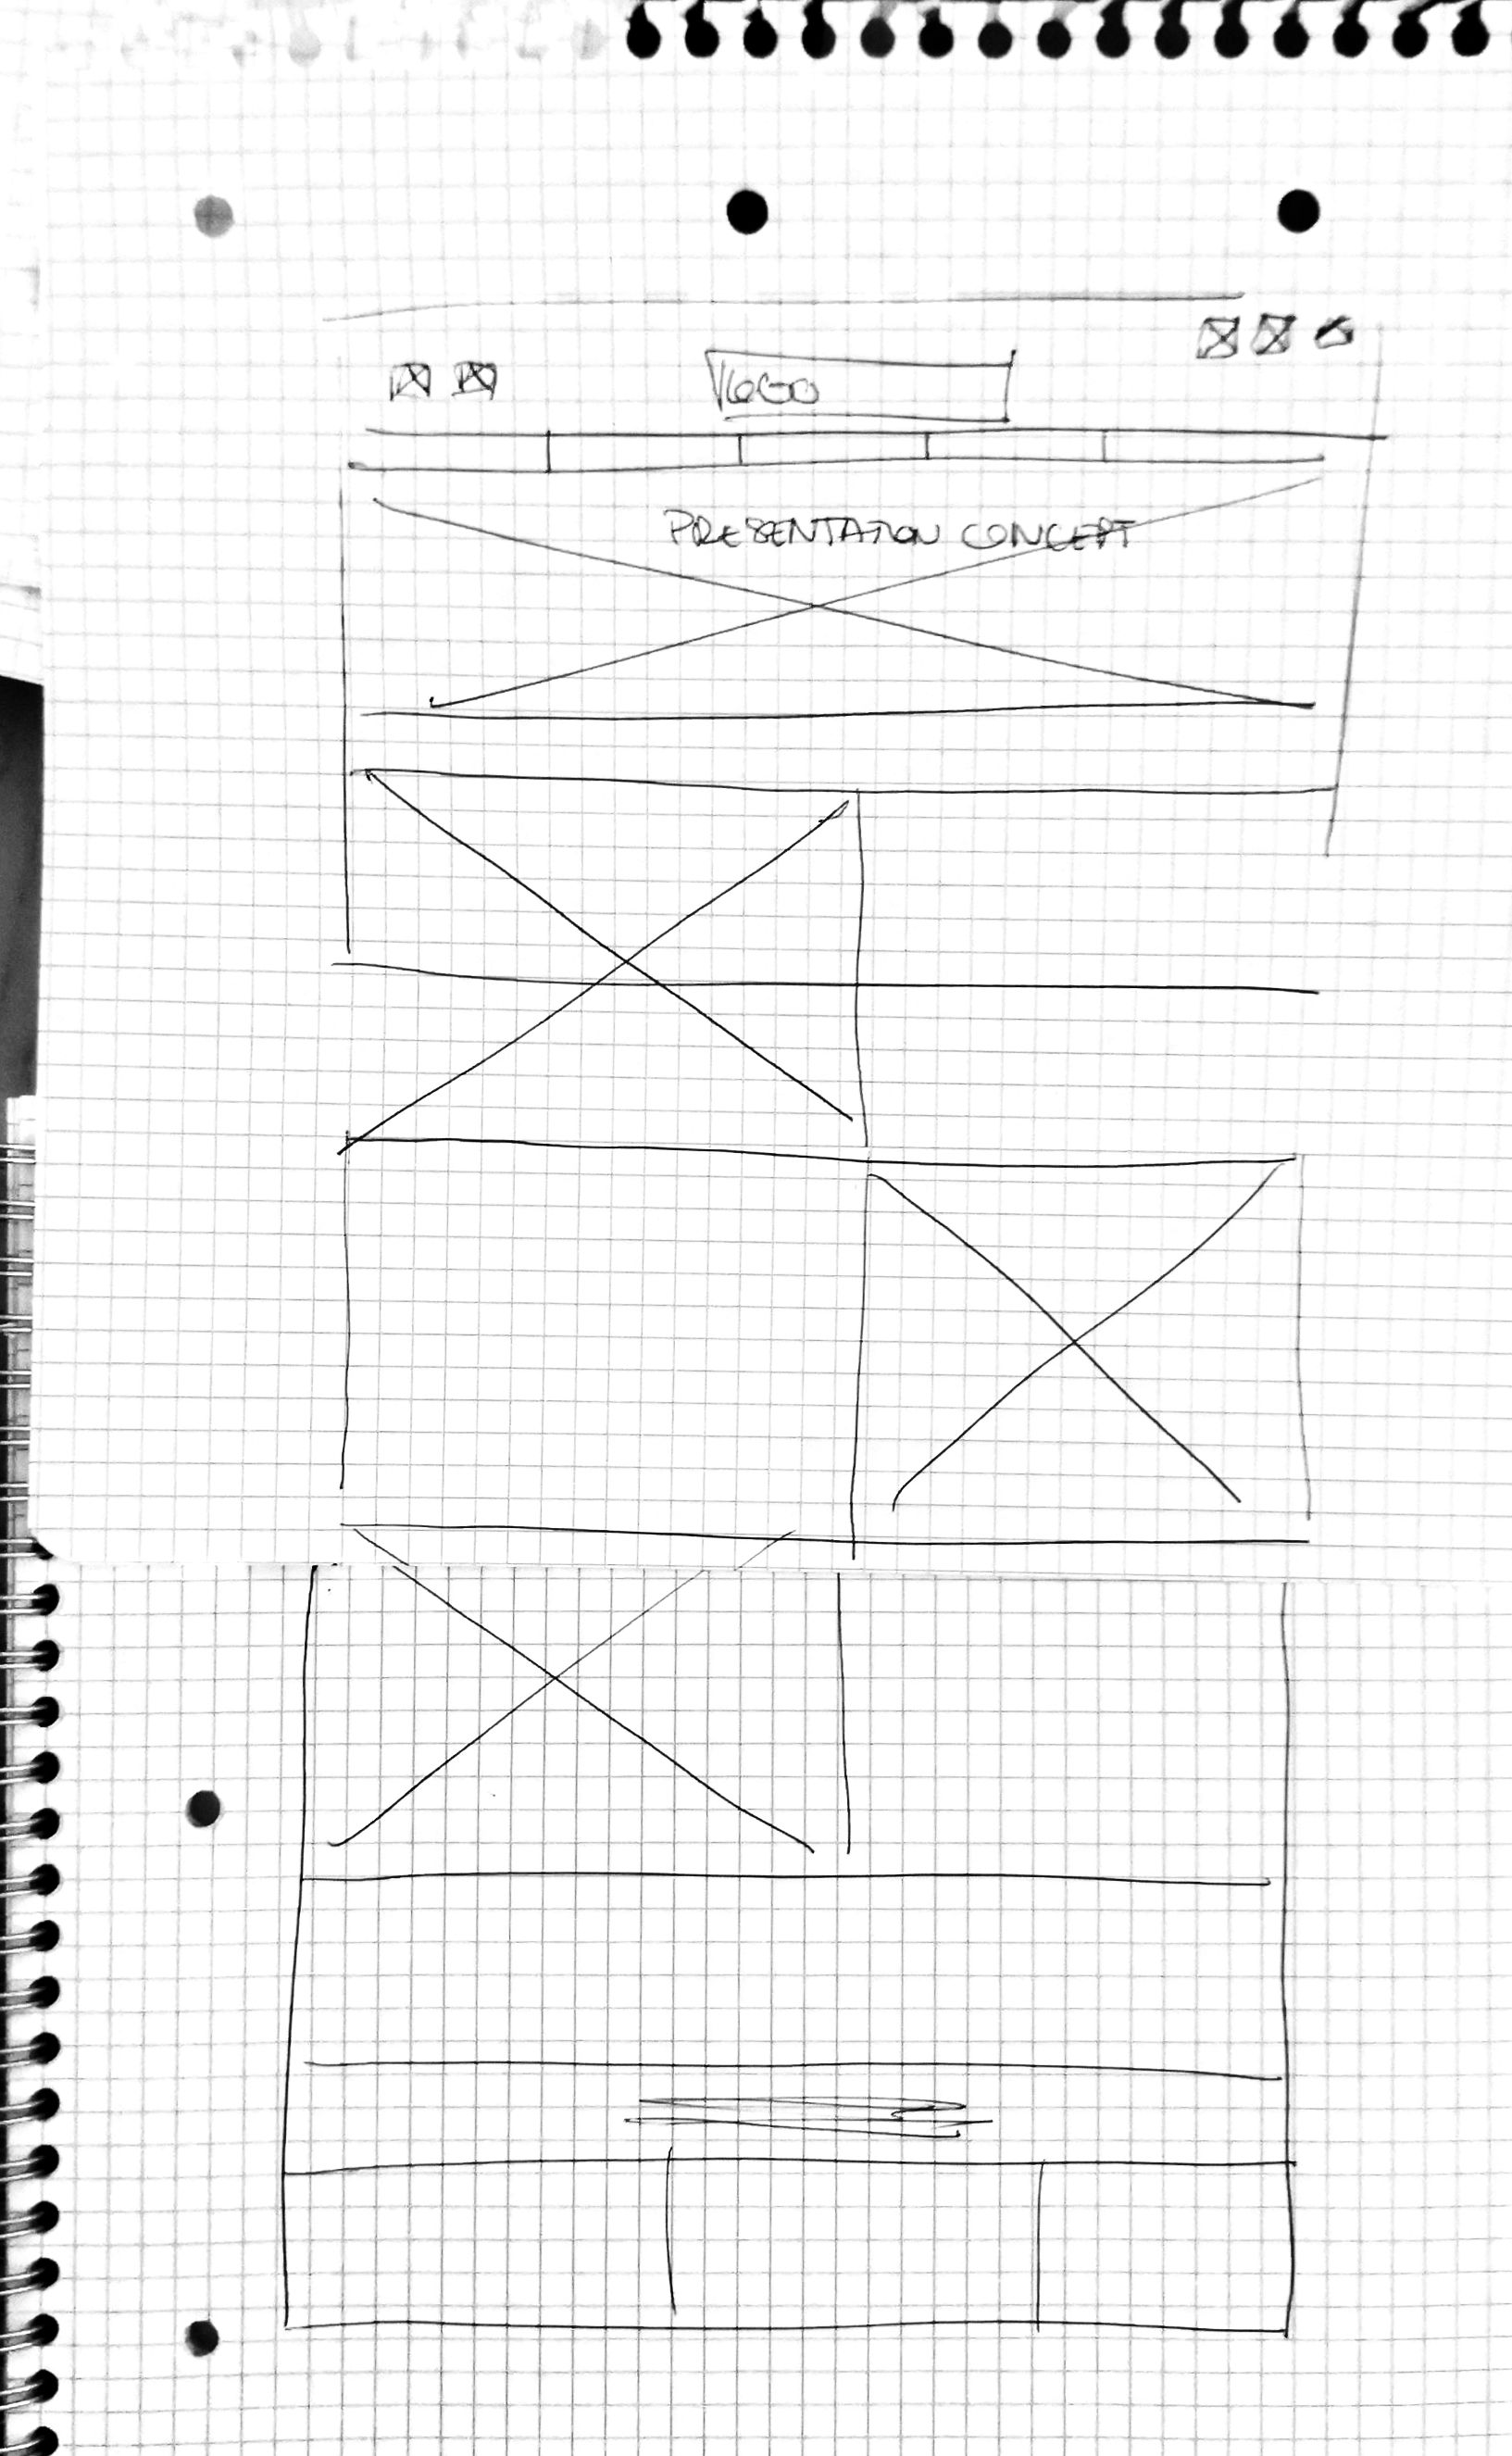 LOGO
PRESENTATION CONCEPT